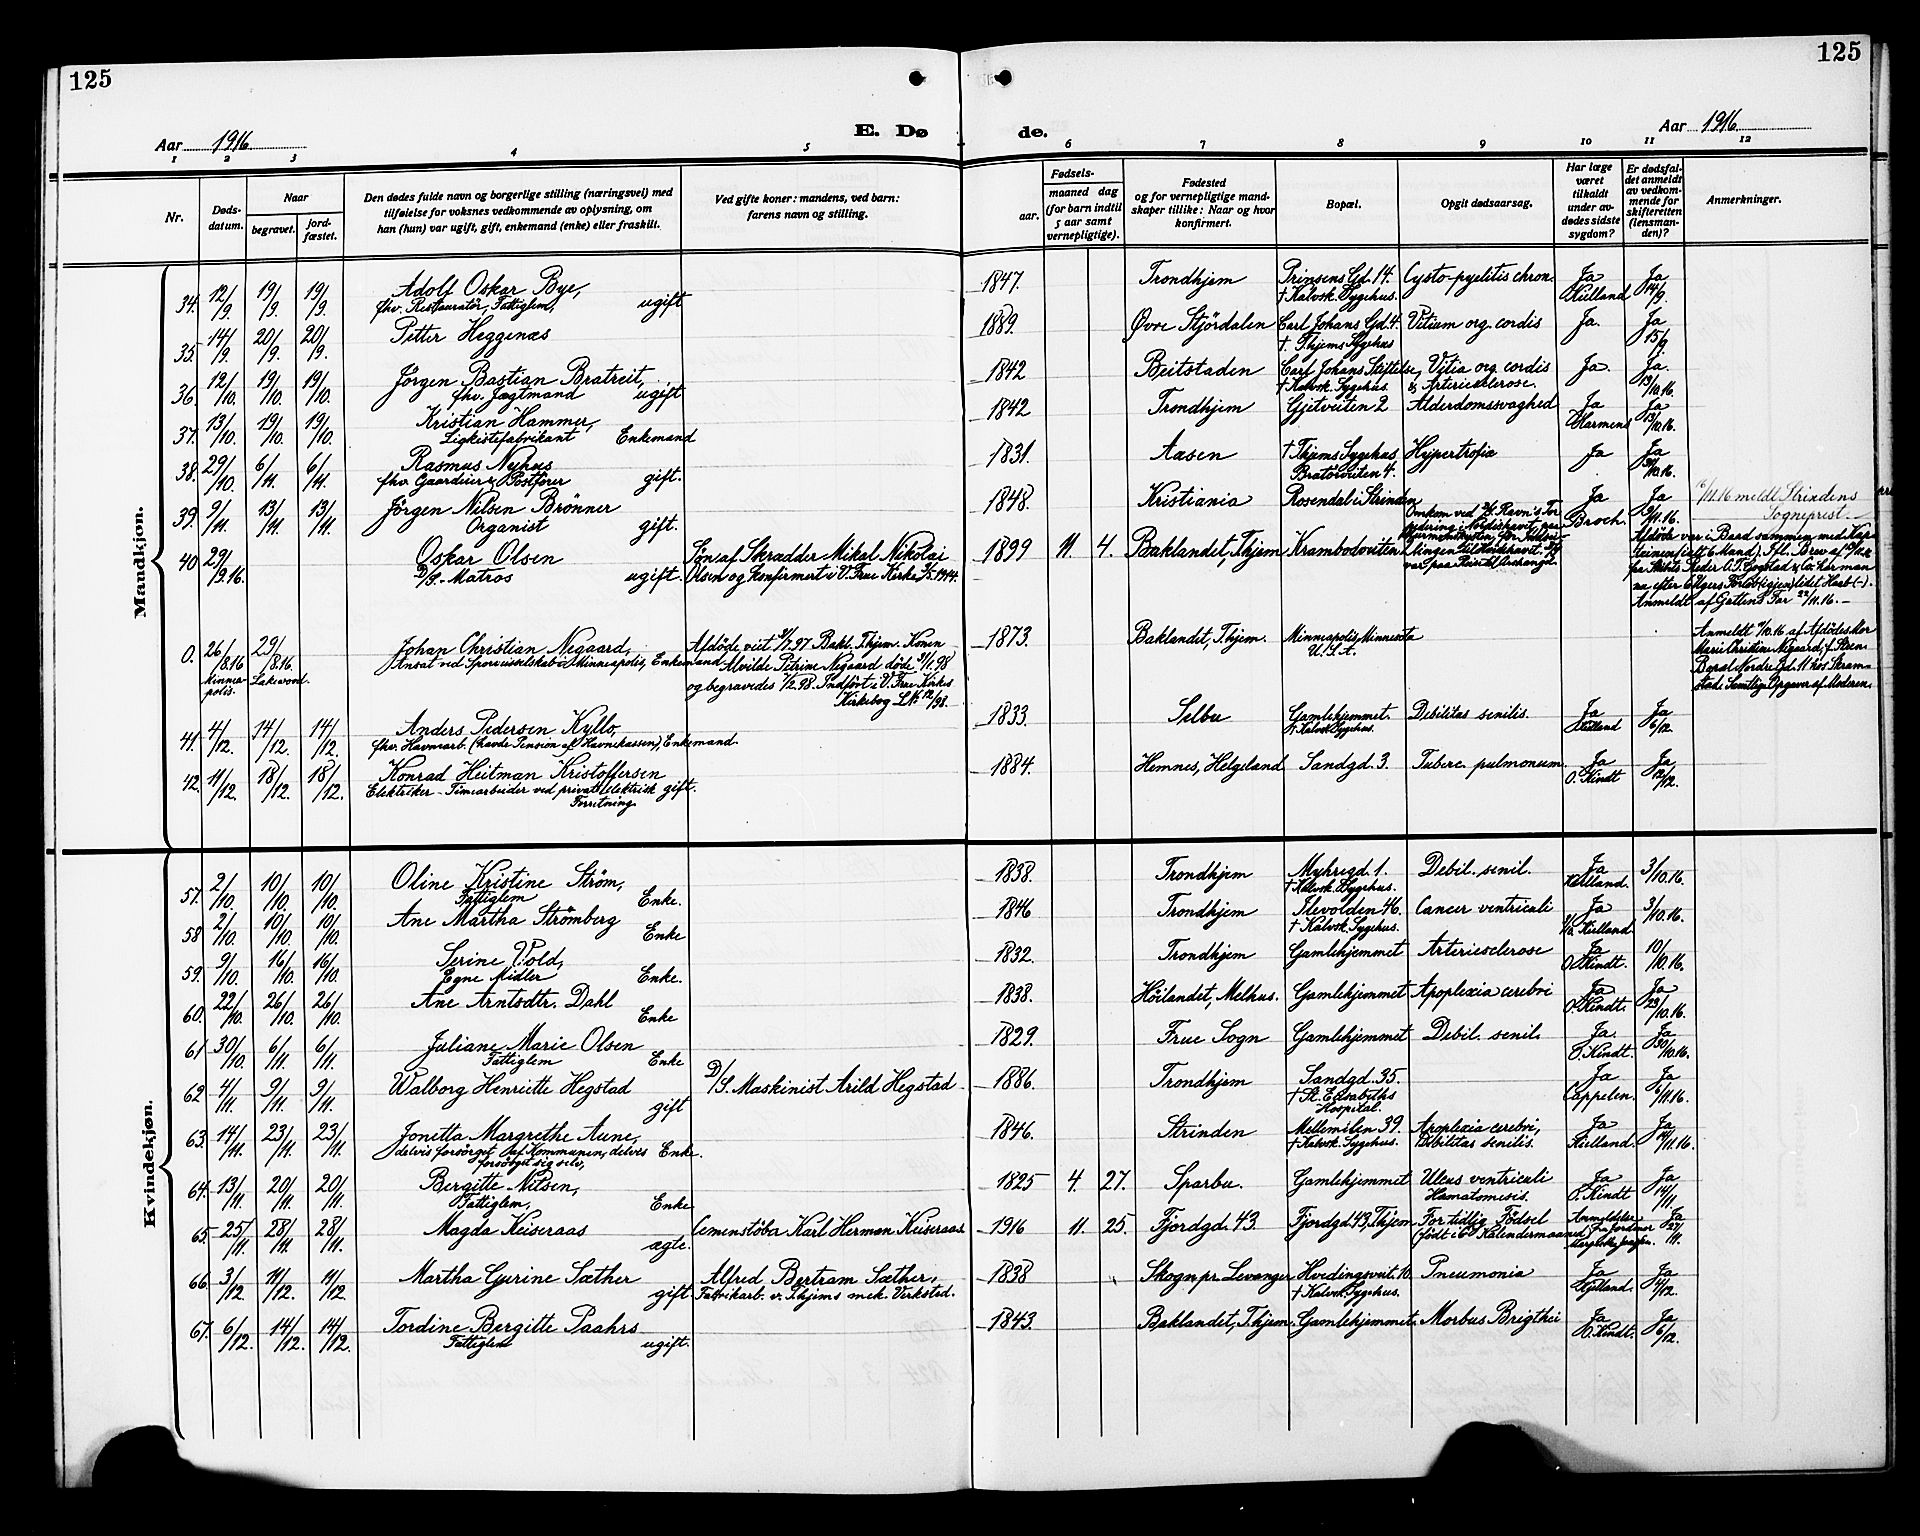 125
125
Aar 1916
E. Dø
de.
Aar 1916
1 2 3 4 5 6 7 8 9 10 11 12
Nr.
Døds-
datum.
Naar
begravet.
jord-
fæstet.
Den dødes fulde navn og borgerlige stilling (næringsvei) med
tilføielse for voksnes vedkommende av oplysning, om
han (hun) var ugift, gift, enkemand (enke) eller fraskilt.
Ved gifte koner: mandens, ved barn:
farens navn og stilling.
Fødsels-
aar.
maaned dag
(for barn indtil
5 aar samt
vernepligtige).
Fødested
og for vernepligtige mand-
skaper tillike: Naar og hvor
konfirmert.
Bopæl.
Opgit dødsaarsag.
Har læge
været
tilkaldt
under av-
dødes sidste
sygdom?
Er dødsfal-
det anmeldt
av vedkom-
mende for
skifteretten
(lensman-
den)?
Anmerkninger.
Mandkjøn.
34. 12/9. 19/9. 19/9. Adolf Oskar Bye, 1847. Trondhjem Prinsens Gd. 14. Cysto-pyelitis chron. Ja Ja
fhv. Restauratör, Fattiglem, ugift † Kalvsk. Sygehus. Kielland 14/9.
35. 14/9. 20/9. 20/9. Petter Heggenæs 1889. Övre Stjördalen Carl Johans Gd. 4. Vitium org. cordis Ja. Ja
†. Thjems Sygehus 15/9.
36. 12/10. 19/10. 19/10. Jörgen Bastian Bratreit, 1842 Beitstaden Carl Johans Stiftelse, Vitia org. cordis Ja. Ja.
fhv. Jægtmand ugift † Kalvsk. Sygehus. & Arteriesclerose. 13/10.16.
37. 13/10. 19/10. 19/10. Kristian Hammer, 1842 Trondhjem Gjetveiten 2 Alderdomssvaghed Ja Ja
Ligkistefabrikant Enkemand Harmens 13/10.16.
38. 29/10. 6/11. 6/11. Rasmus Nyhus 1831. Aasen † Thjems Sygehus Hypertrofia Ja Ja
fhv. Gaardeier & Postförer gift. Bratörveiten 4. 30/10.16.
39. 9/11. 13/11. 13/11. Jörgen Nilsen Brönner 1848. Kristiania Rosendal i Strinden Ja Ja 16/11.16 meldt Strindens
Organist gift. Broch. 9/11.16. Sogneprest.
40 29/9.16. Oskar Olsen Sön af Skrædder Mikal Nikolai 1899 11. 4. Baklandet, Thjem Krambodveiten 2
D/S. Matros ugift. Olsen og konfirmert i V. Frue Kirke 3/5 1914.
Omkom ved D/S. Ravn's Tor-
pedering i Nordishavet, paa
var paa Reise til Archangel.
Afdöde var i Baad sammen med Kap-
teinen (ialt 6 Mand).
Anmeldt af Guttens Far 22/11.16. —
0. 26/8.16 29/8.16. Johan Christian Negaard, Afdöde, viet 4/7.97 Bakl. Thjem. Konen 1873. Baklandet, Thjem. Minneapolis, Minnesota
Minnea-
polis. Lakewood. Ansat ved Sporveiselskab i Minneapolis, Enkemand Alvilde Petrine Negaard döde 31/1.98 U.S.A.
og begravedes 7/2.98. Indfört i V. Frue Kirkes
Kirkebog L. Nr. 12/98.
Anmeldt 9/10.16 af Afdödes Mor
Marie Christine Negaard, f. Steen
Bopæl Nordre Gd. 11 hos Skram-
stad. Samtlige Opgaver af Moderen.
41. 4/12. 14/12. 14/12. Anders Pedersen Kyllo, 1833. Selbu Gamlehjemmet. Debilitas senilis. Ja Ja
fhv. Havnearb. (havde Pension af Havnekassen), Enkemand. † Kalvsk. Sygehus. Kielland 6/12.
42. 11/12. 18/12. 18/12. Konrad Heitman Kristoffersen 1884. Hemnes, Helgeland Sandgd. 3. Tuberc. pulmonum. Ja Ja
Elektriker - Timearbeider ved privat elektrisk gift. O. Kindt 12/12.
Forretning.
Kvindekjøn.
57. 2/10. 10/10. 10/10. Oline Kristine Ström, 1838. Trondhjem Myhregd. 1. Debil. senil. Ja 3/10.16.
Fattiglem Enke. † Kalvsk. Sygehus. Kielland.
58 2/10. 10/10. 10/10. Ane Martha Strömberg 1846 Trondhjem Ilevolden 46. Cancer ventriculi Ja 3/10.16.
Enke † Kalvsk. Sygehus. Kielland
59. 9/10. 16/10. 16/10. Serine Vold, 1832. Trondhjem Gamlehjemmet Arteriesclerose Ja 10/10.16.
Egne Midler Enke. O. Kindt.
60. 22/10. 26/10. 26/10. Ane Arntsdtr. Dahl 1838. Höilandet, Melhus. Gamlehjemmet Apoplexia cerebri Ja Ja
Enke O. Kindt. 23/10.16.
61 30/10. 6/11. 6/11. Juliane Marie Olsen 1829. Frue Sogn Gamlehjemmet Debil. senil. Ja. Ja
Fattiglem Enke O. Kindt. 30/10.16.
62 4/11. 9/11. 9/11. Walborg Henriette Hegstad D/S. Maskinist Arild Hegstad 1886. Trondhjem Sandgd. 35. Ja Ja
gift † St. Elisabeths Cappelen. 6/11.16.
Hospital.
63. 14/11. 23/11. 23/11. Jonetta Margrethe Aune, 1846. Strinden Mellemilen 39. Apoplexia cerebri, Ja Ja
delvis forsörget af Kommunen, delvis Enke. † Kalvsk. Sygehus. Debilitas senilis. Kielland. 14/11.16.
forsörget sig selv,
64. 13/11. 20/11. 20/11. Bergitte Nilsen, 1825 4. 27. Sparbu. Gamlehjemmet Ulcus ventriculi Ja Ja
Fattiglem, Enke Hæmatomesis. O. Kindt 14/11.
65. 25/11. 28/11. 28/11. Magda Keiseraas Cementstöber Karl Herman Keiseraas 1916 11. 25. Fjordgd. 43. Fjordgd. 43, Thjem For tidlig Födsel Anmeldelse Ja
ægte. (födt i 6te Kalendermaaned) fra Jordmor 27/11.
66. 3/12. 11/12. 11/12. Martha Gurine Sæther Alfred Bertram Sæther, 1838 Skogn pr. Levanger Hvedingsveit. 10 Pneumonia Ja Ja
gift Fabrikarb. v. Thjems mek. Verksted. † Kalvsk. Sygehus. Kielland 4/12.
67. 6/12. 14/12. 14/12. Tordine Bergitte Paahrs 1843. Baklandet, Thjem. Gamlehjemmet. Morbus Brigthei Ja Ja
Fattiglem ugift. O. Kindt. 6/12.